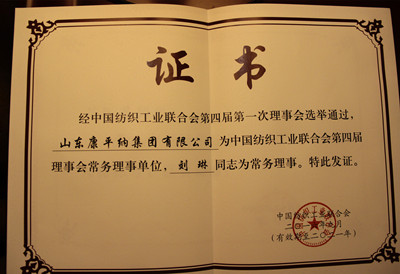 证书
经中国纺织工业联合会第四届第一次理事会选举通过，
山东康平纳集团有限公司为中国纺织工业联合会第四届
理事会常务理事单位，刘琳同志为常务理事。特此发证。
中国纺织工业联合会
(有效期至二〇二一年)